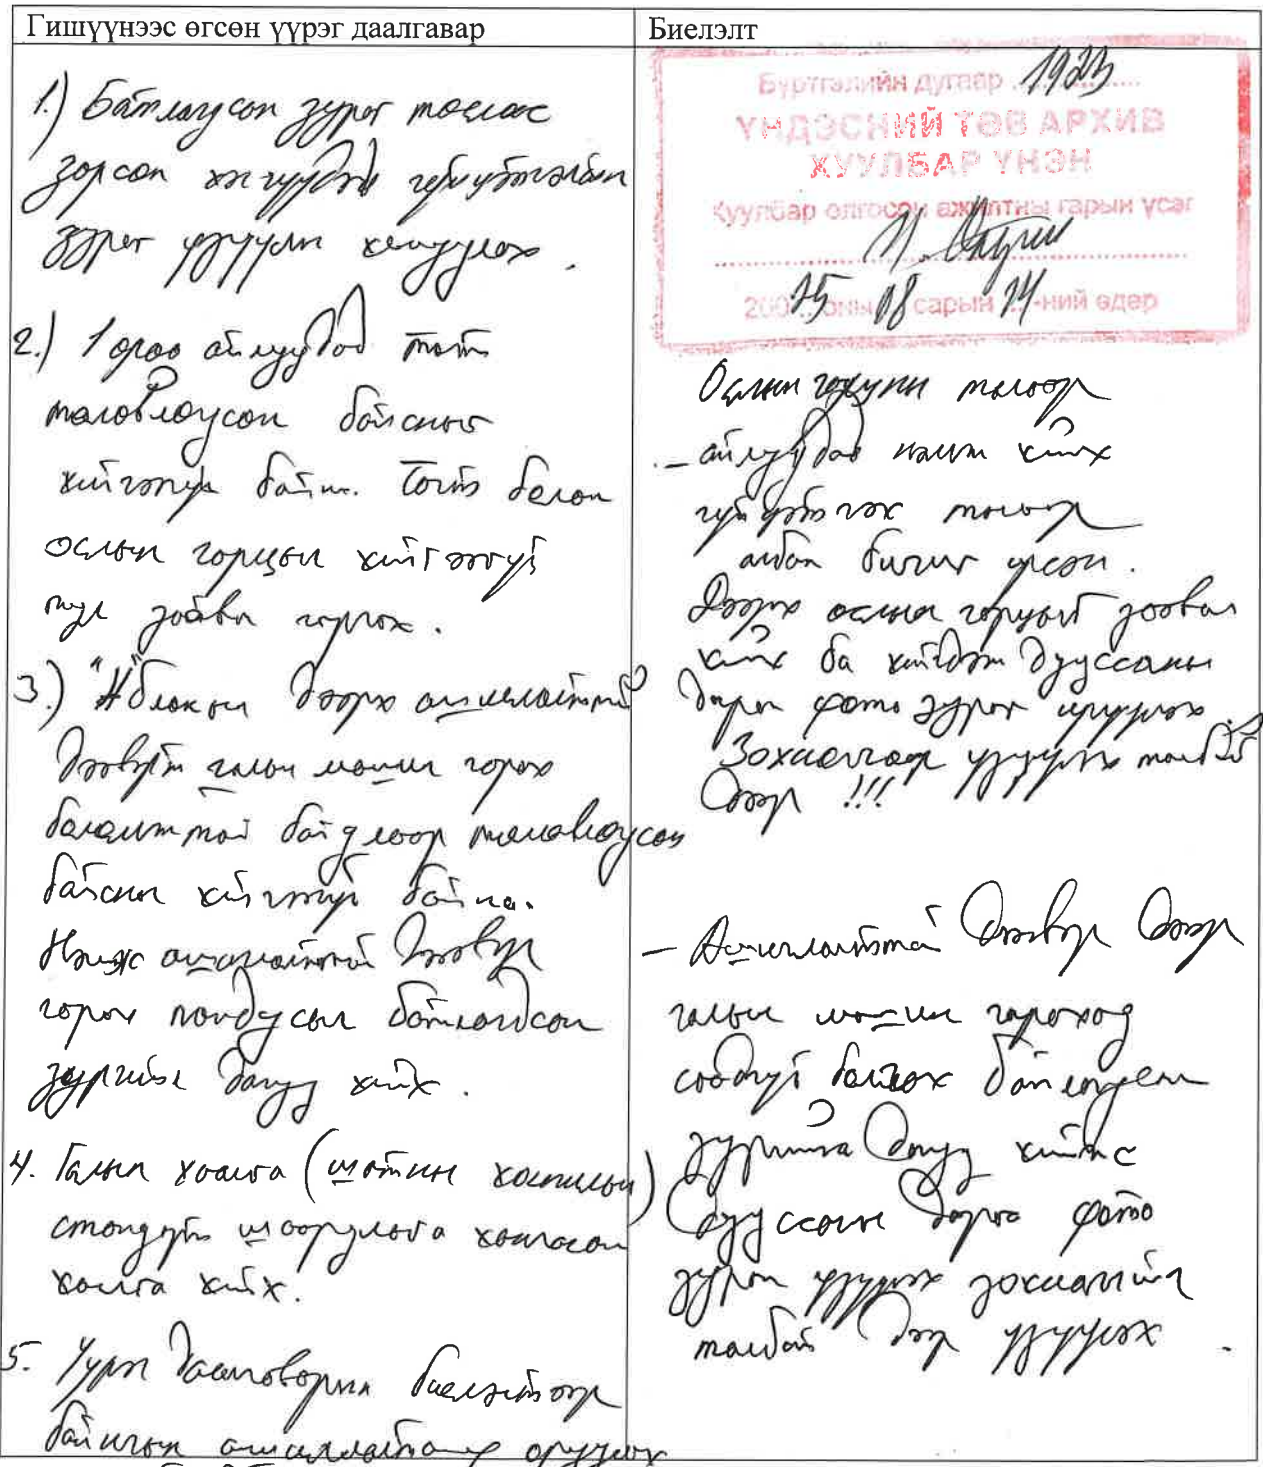 Гишүүнээс өгсөн үүрэг даалгавар
1.) Батлагдсон зураг төслөөс
зөрсөн хэсгүүдэд гүйцэтгэлийн
зураг үзүүлж хянуулах.
2.) 1 өрөө айлуудад тагт
төлөвлөгдсөн байсныг
хийгээгүй байна. Тагт болон
ослын гарцын хийгээгүй
тул заавал гаргах.
3.) "А" блокын дээрх ашиглалттай
дээвэрт галын машин гарах
боломжтой байдлаар төлөвлөгдсөн
байсны хийгээгүй байна.
ашиглалттай дээвэр
гарах пандусыг батлагдсан
зургийн дагуу хийх.
4. Галын хаалга (шатны хонгилын)
стандарт шаардлага хангасан
хаалга хийх.
5. Үүрэг даалгаварын биелэлтээр
байнгын ашиглалтанд оруулах
Биелэлт
Бүртгэлийн дугаар 1923
ҮНДЭСНИЙ ТӨВ АРХИВ
ХУУЛБАР ҮНЭН
Хуулбар олгосон ажилтны гарын үсэг
2025 оны 08 сарын 14-ний өдөр
Ослын гарцын талаар
- айлуудад хийх
гүйцэтгэх талаар
албан бичиг өгсөн.
Дээрх ослын гарцыг заавал
хийх ба хийгдэж дууссаны
дараа фото зураг ируулэх
Захиалагчаар үзүүлэх талбай
дээр !!!
- Ашиглалттай дээвэр дээр
галын машин гарахад
саадгүй байлгах батлагдсан
зургийн дагуу хийж
дууссаны дараа фото
зураг үзүүлэх захиалагчийг
талбай дээр үзүүлэх.